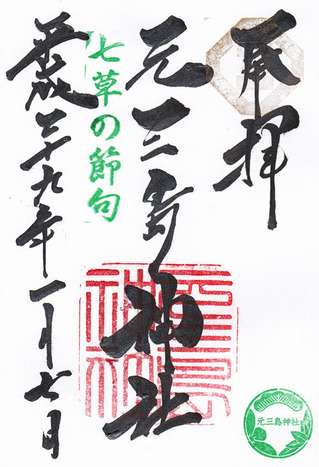 奉拝
元三島神社
七草の節句
平成二十九年一月七日
元三島神社